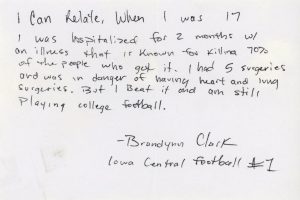 I Can Relate, When I was 17
I was hospitalized for 2 months w/
an illness that is known for killing 70%
of the people who get it. I had 5 surgeries
and was in danger of having heart and lung
surgeries. But I Beat it and am still
Playing college football.
-Brandynn Clark
Iowa Central Football #1